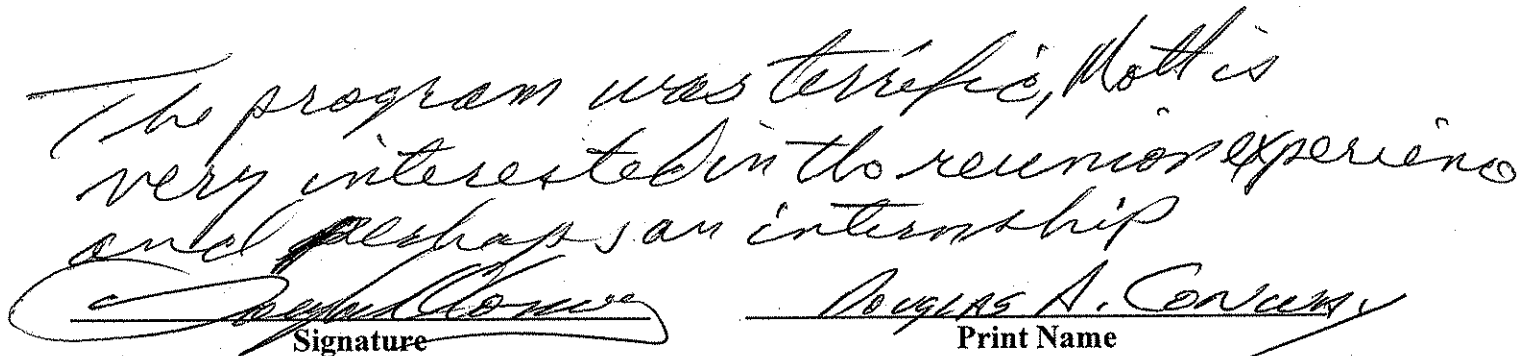 The program was terrific, Matt is
very interested in the reunion experience
and perhaps an internship
Douglas A. Conway
Signature
Print Name